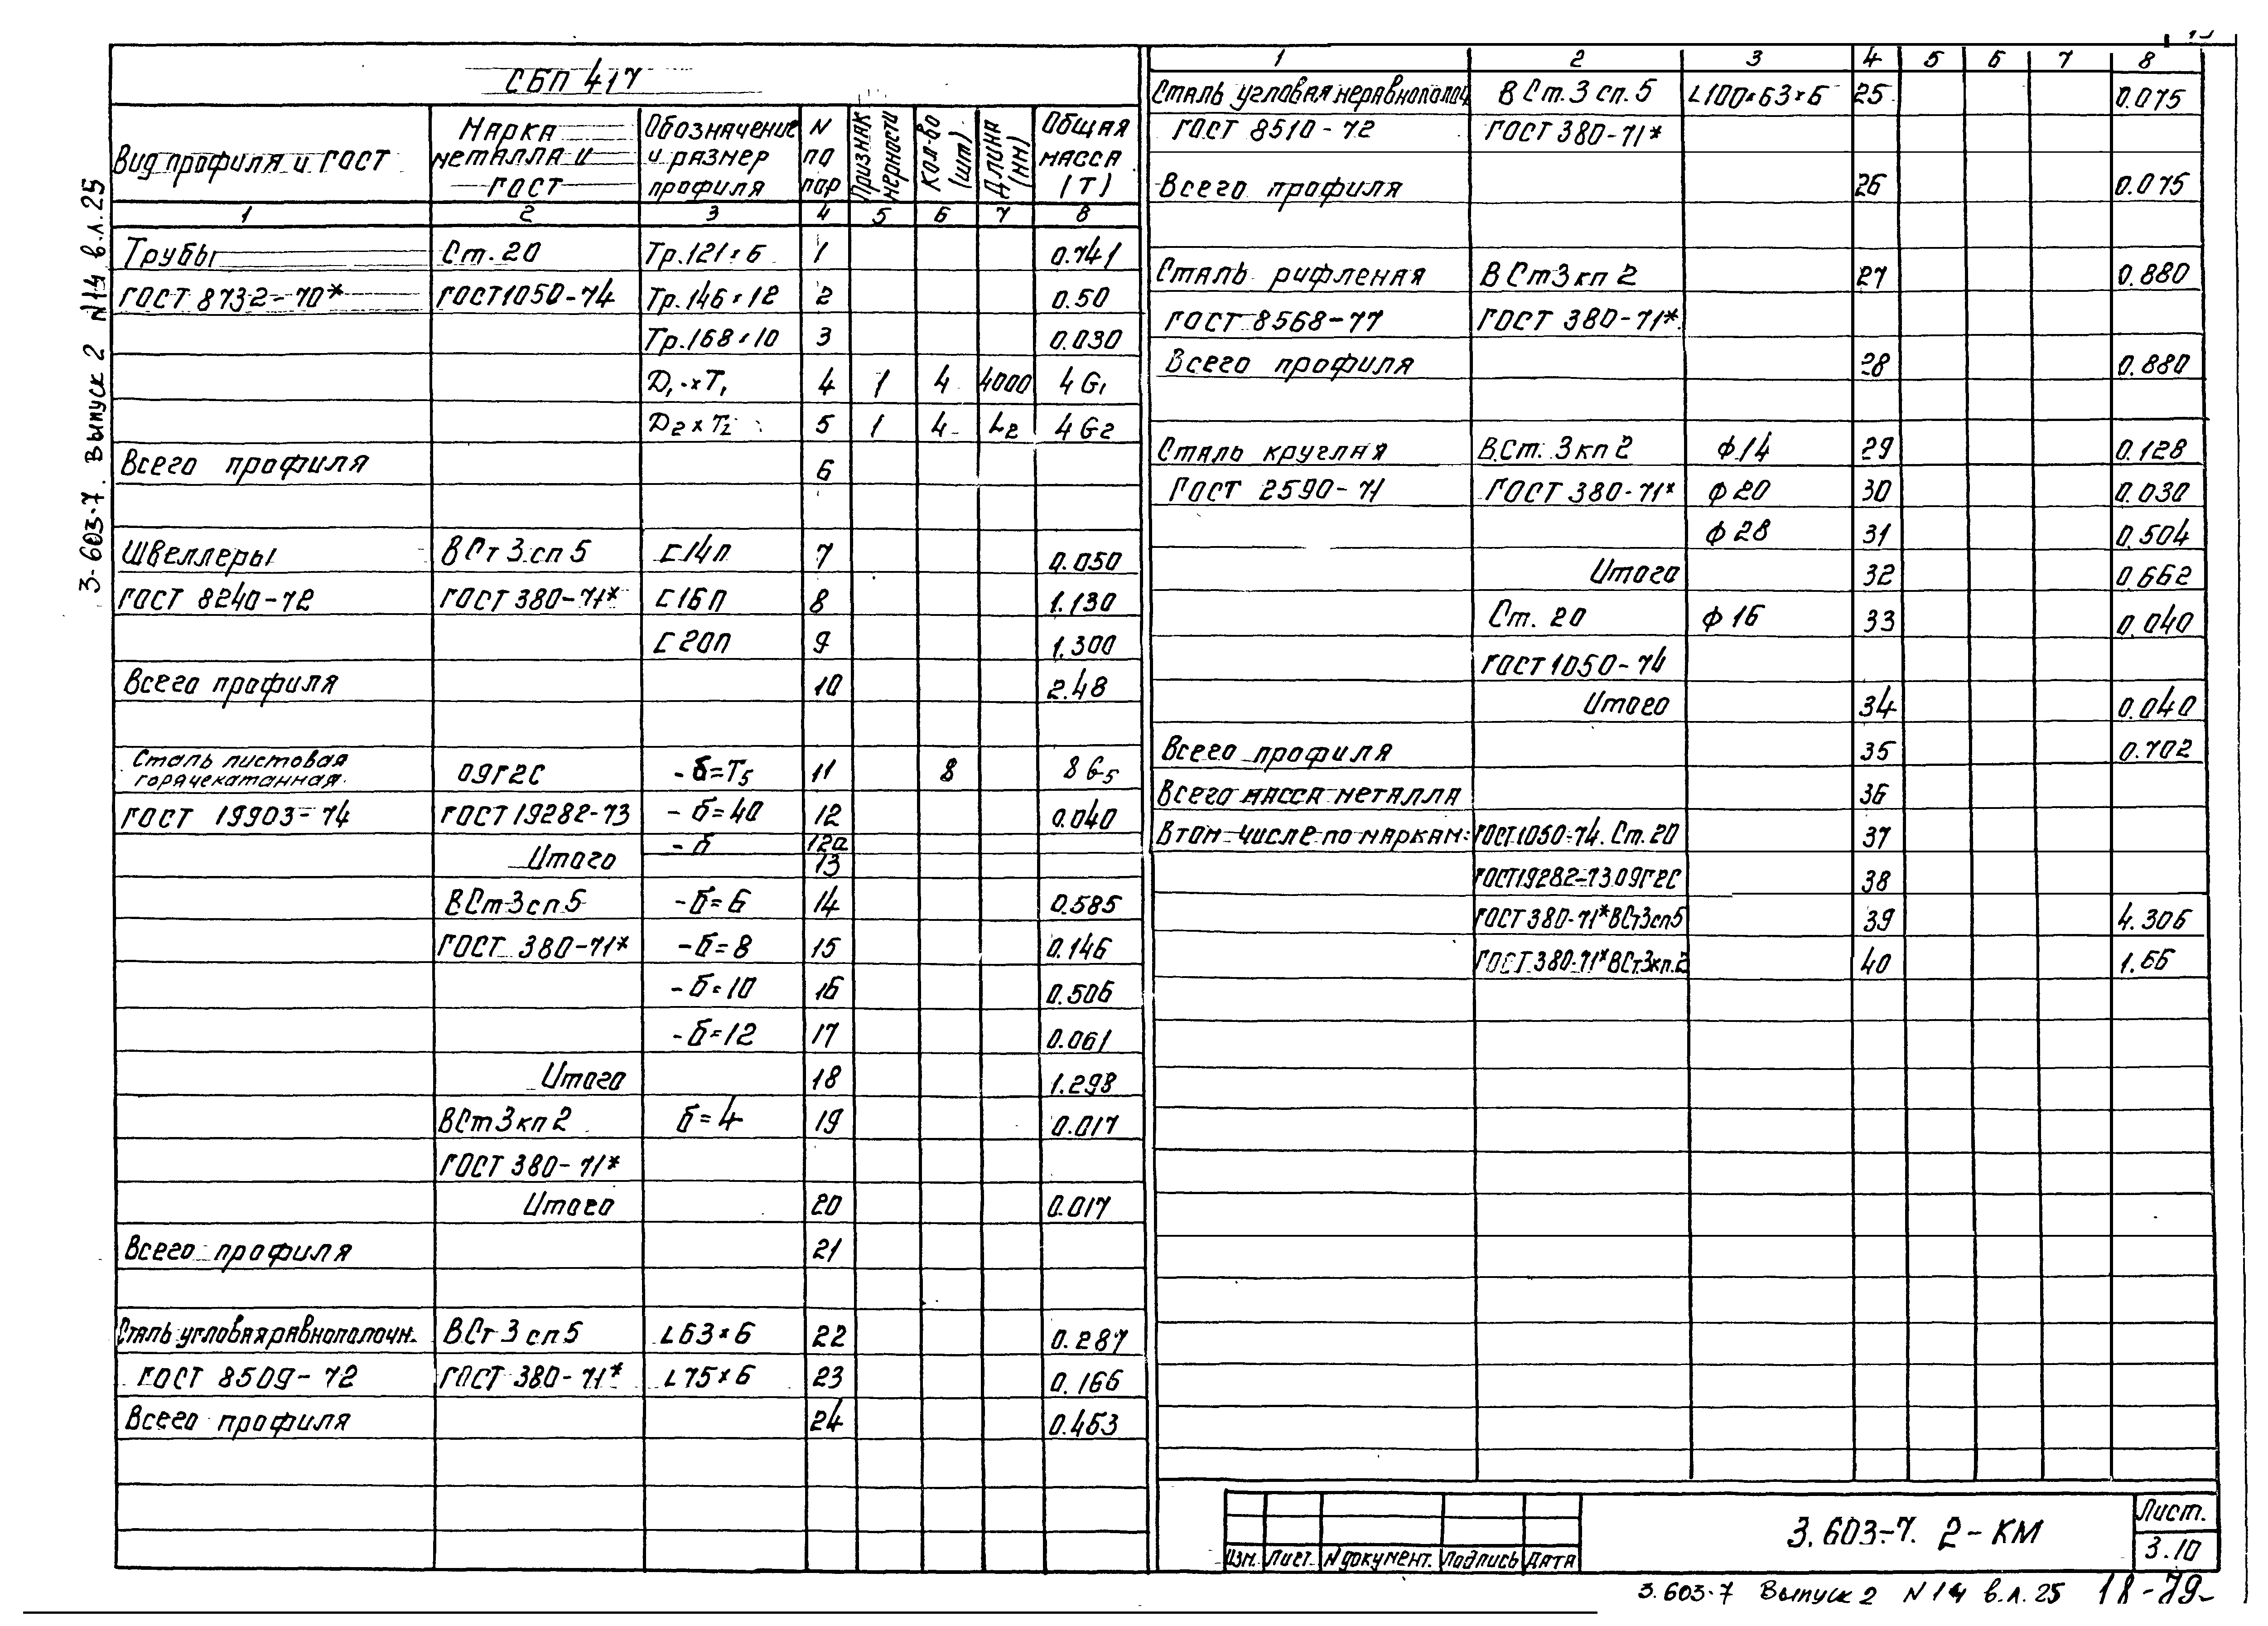 СБП 417
Вид профиля и ГОСТ | Марка металла и ГОСТ | Обозначение и размер профиля | N по пор | Признак мерности | Кол-во (шт) | Длина (мм) | Общая масса (Т)
1 2 3 4 5 6 7 8
Трубы Ст.20 Тр.121×6 1 0.741
ГОСТ 8732-70* ГОСТ1050-74 Тр.146×12 2 0.50
Тр.168×10 3 0.030
D1×T1 4 1 4 4000 4G1
D2×T2 5 1 4 L2 4G2
Всего профиля 6
Швеллеры ВСт3сп5 [14П 7 0.050
ГОСТ 8240-72 ГОСТ380-71* [16П 8 1.130
[20П 9 1.300
Всего профиля 10 2.48
Сталь листовая
горячекатанная 09Г2С -δ=T5 11 8 8G5
ГОСТ 19903-74 ГОСТ19282-73 -δ=40 12 0.040
-δ 12а
Итого 13
ВСт3сп5 -δ=6 14 0.585
ГОСТ 380-71* -δ=8 15 0.146
-δ=10 16 0.506
-δ=12 17 0.061
Итого 18 1.298
ВСт3кп2 δ=4 19 0.017
ГОСТ 380-71*
Итого 20 0.017
Всего профиля 21
Сталь угловая равнополочн. ВСт3сп5 L63×6 22 0.287
ГОСТ 8509-72 ГОСТ 380-71* L75×6 23 0.166
Всего профиля 24 0.453
1 2 3 4 5 6 7 8
Сталь угловая неравнополоч. ВСт.3сп.5 L100×63×6 25 0.075
ГОСТ 8510-72 ГОСТ 380-71*
Всего профиля 26 0.075
Сталь рифленая ВСт3кп2 27 0.880
ГОСТ 8568-77 ГОСТ 380-71*
Всего профиля 28 0.880
Сталь круглая ВСт.3кп2 ф14 29 0.128
ГОСТ 2590-71 ГОСТ 380-71* ф20 30 0.030
ф28 31 0.504
Итого 32 0.662
Ст. 20 ф16 33 0.040
ГОСТ1050-74
Итого 34 0.040
Всего профиля 35 0.702
Всего масса металла 36
В том числе по маркам: ГОСТ.1050-74. Ст.20 37
ГОСТ19282-73.09Г2С 38
ГОСТ 380-71*ВСт3сп5 39 4.306
ГОСТ.380-71*ВСт.3кп.2 40 1.66
Изм. Лист N документ. Подпись Дата
3.603-7. 2-КМ
Лист.
3.10
3.603-7 Выпуск 2 N14 в.л.25 18-79
3-603-7. Выпуск 2 N14 в.л.25